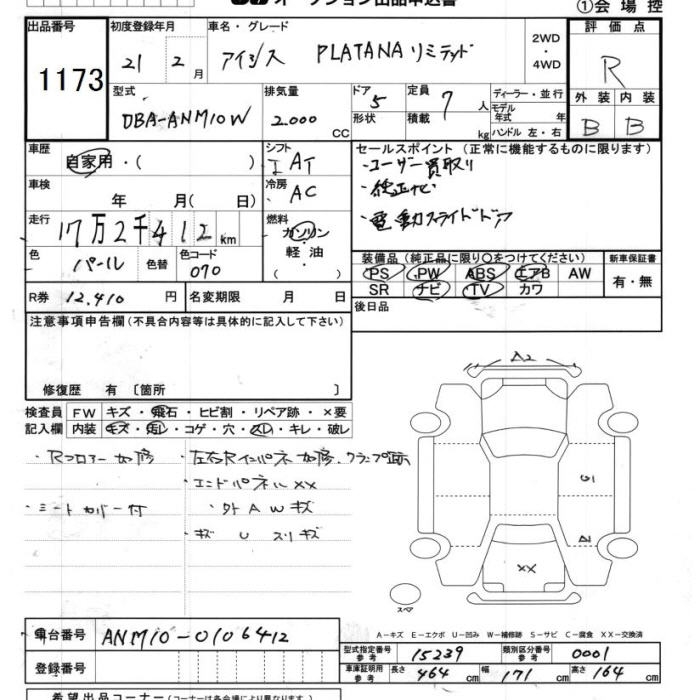 オークション出品申込書
①会場控
出品番号 初度登録年月 車名・グレード 2WD・4WD 評価点
1173 21年 2月 アイシス PLATANA リミテッド R
型式 排気量 ドア形状 5 定員 7人 積載 kg ディーラー・並行 モデル年式 年式 ハンドル 左・右 外装 内装
DBA-ANM10W 2.000 CC B B
車歴 自家用・( ) シフト I AT セールスポイント (正常に機能するものに限ります)
・ユーザー買取り
車検 年 月( 日) 冷房 AC ・純正ナビ
走行 17万2千412km 燃料 ガソリン・軽油・( ) ・電動スライドドア
色 パール 色替 色コード 070 装備品 (純正品に限り○をつけてください) 新車保証書
PS PW ABS エアB AW 有・無
SR ナビ TV カワ
R券 12.410円 名変期限 月 日 後日品
注意事項申告欄 (不具合内容等は具体的に記入して下さい)
修復歴 有 〔箇所 〕
検査員 FW キズ・飛石・ヒビ割・リペア跡・×要
記入欄 内装 キズ・汚レ・コゲ・穴・スレ・キレ・破レ
・Rフロアー 加修 ・左右Rインパネ 加修、クランプ跡
・エンドパネル XX
・シートカバー付 ・外AWキズ
・キズ U スリキズ
A2
G1
A1
XX
スペア
A－キズ E－エクボ U－凹み W－補修跡 S－サビ C－腐食 XX－交換済
車台番号 ANM10-0106412
型式指定番号 参考 15239 類別区分番号 参考 0001
登録番号
車庫証明用 参考 長さ 464cm 幅 171cm 高さ 164cm
希望出品コーナー (コーナーは各会場により異なります)